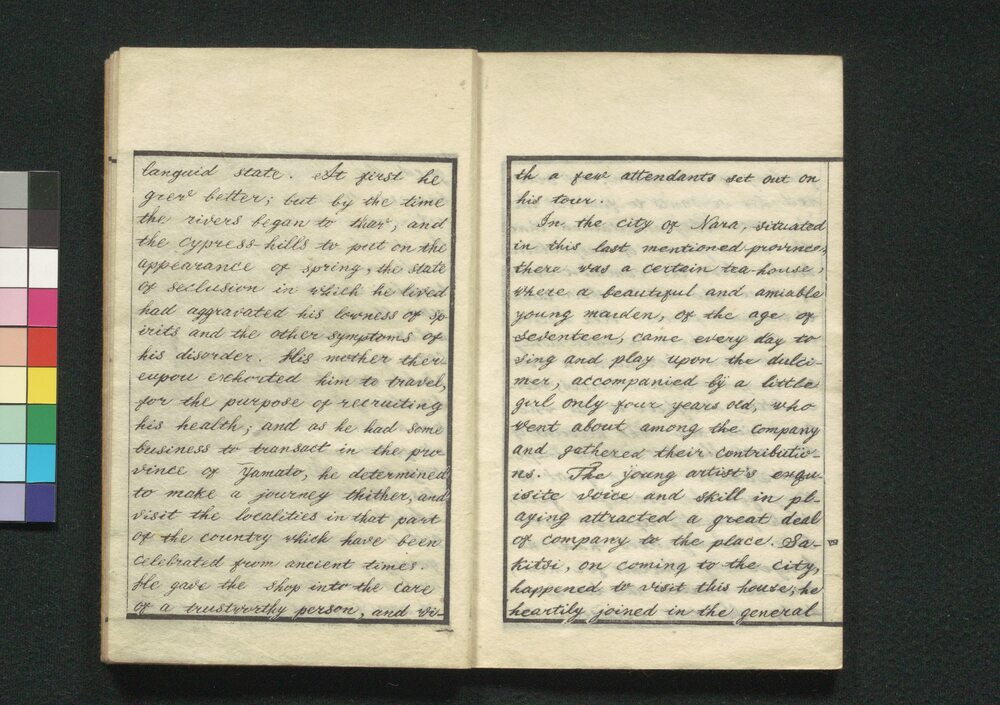 languid state. At first he
grew better; but by the time
the rivers began to thaw, and
the cypress-hills to put on the
appearance of spring, the state
of seclusion in which he lived
had aggravated his lowness of sp
irits and the other symptoms of
his disorder. His mother ther
eupon exhorted him to travel,
for the purpose of recruiting
his health; and as he had some
business to transact in the pro
vince of Yamato, he determined
to make a journey thither, and
visit the localities in that part
of the country which have been
celebrated from ancient times.
He gave the shop into the care
of a trustworthy person, and wi-
th a few attendants set out on
his tour.
In the city of Nara, situated
in this last mentioned province,
there was a certain tea-house,
where a beautiful and amiable
young maiden, of the age of
seventeen, came every day to
sing and play upon the dulci-
mer, accompanied by a little
girl only four years old, who
went about among the company
and gathered their contributio-
ns. The young artist's exqu-
isite voice and skill in pl-
aying attracted a great deal
of company to the place. Sa-
kitsi, on coming to the city,
happened to visit this house; he
heartily joined in the general